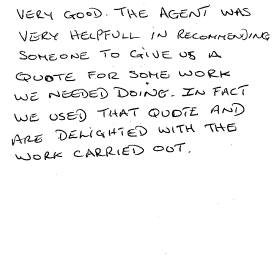 VERY GOOD. THE AGENT WAS
VERY HELPFULL IN RECOMMENDING
SOMEONE TO GIVE US A
QUOTE FOR SOME WORK
WE NEEDED DOING. IN FACT
WE USED THAT QUOTE AND
ARE DELIGHTED WITH THE
WORK CARRIED OUT.